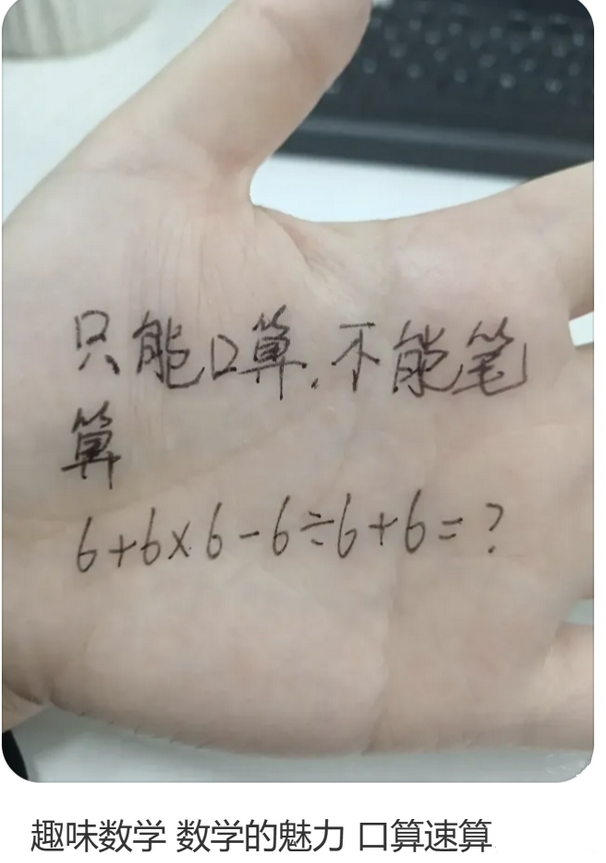 只能口算,不能笔
算
6+6×6-6÷6+6=?
趣味数学 数学的魅力 口算速算